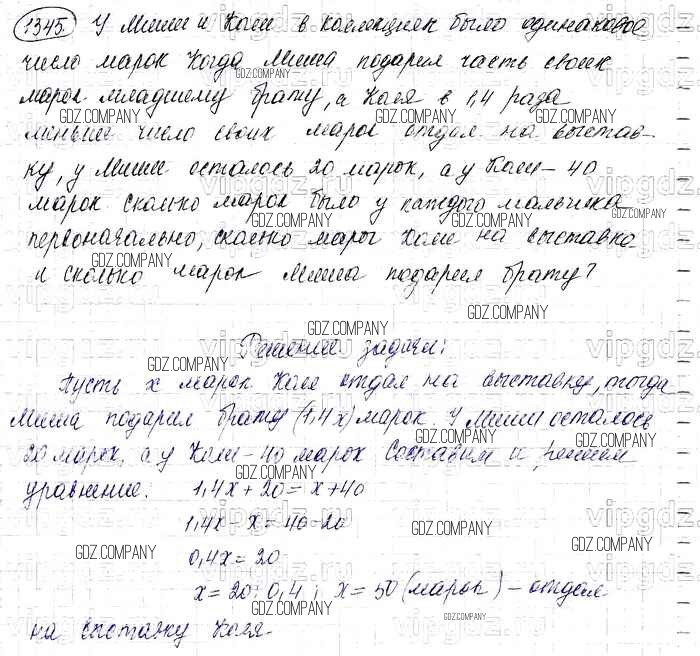 1345. У Миши и Коли в коллекциях было одинаковое
число марок Когда Миша подарил часть своих
марок младшему брату, а Коля в 1,4 раза
меньшее число своих марок отдал на выстав-
ку, у Миши осталось 20 марок, а у Коли - 40
марок сколько марок было у каждого мальчика
первоначально, сколько марок Коли на выставке
и сколько марок Миши подарил брату?
Решение задачи:
Пусть x марок Коля отдал на выставку, тогда
Миша подарил брату (1,4x) марок. У Миши осталось
20 марок, а у Коли - 40 марок Составим и решим
уравнение: 1,4x + 20 = x + 40
1,4x - x = 40 - 20
0,4x = 20
x = 20 : 0,4 ; x = 50 (марок) - отдал
на выставку Коля
GDZ.COMPANY
vipgdz.ru